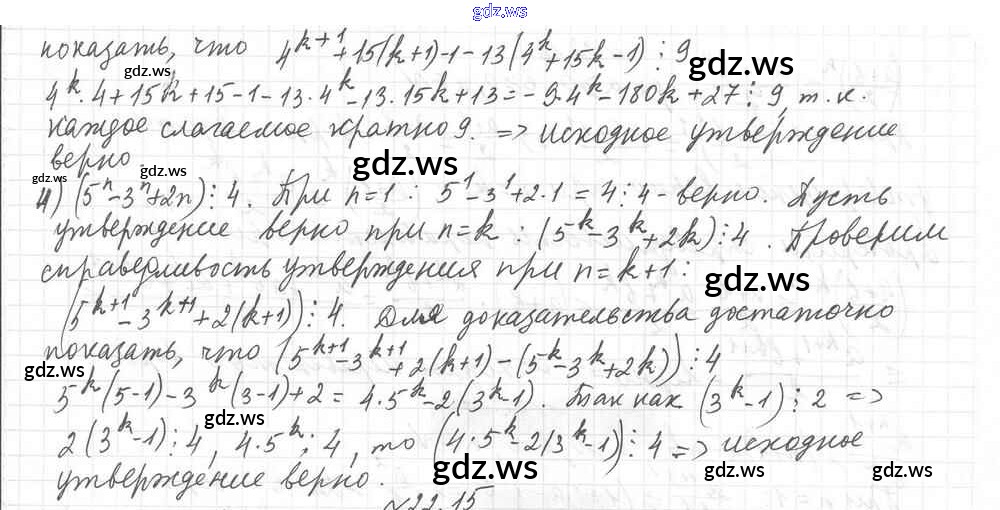 gdz.ws
показать, что 4^{k+1}+15(k+1)-1-13(4^k+15k-1) ⋮ 9
gdz.ws gdz.ws
4^k·4+15k+15-1-13·4^k-13·15k+13=-9·4^k-180k+27 ⋮ 9, т.к.
каждое слагаемое кратно 9. => исходное утверждение
верно.
gdz.ws gdz.ws gdz.ws gdz.ws
4) (5^n-3^n+2n) ⋮ 4. При n=1: 5^1-3^1+2·1=4 ⋮ 4 - верно. Пусть
утверждение верно при n=k: (5^k-3^k+2k) ⋮ 4. Проверим
справедливость утверждения при n=k+1:
gdz.ws gdz.ws
(5^{k+1}-3^{k+1}+2(k+1)) ⋮ 4. Для доказательства достаточно
показать, что (5^{k+1}-3^{k+1}+2(k+1)-(5^k-3^k+2k)) ⋮ 4
gdz.ws
5^k(5-1)-3^k(3-1)+2=4·5^k-2(3^k-1). Так как (3^k-1) ⋮ 2 =>
gdz.ws
2(3^k-1) ⋮ 4, 4·5^k ⋮ 4, то (4·5^k-2(3^k-1)) ⋮ 4 => исходное
утверждение верно.
gdz.ws gdz.ws
№22.15